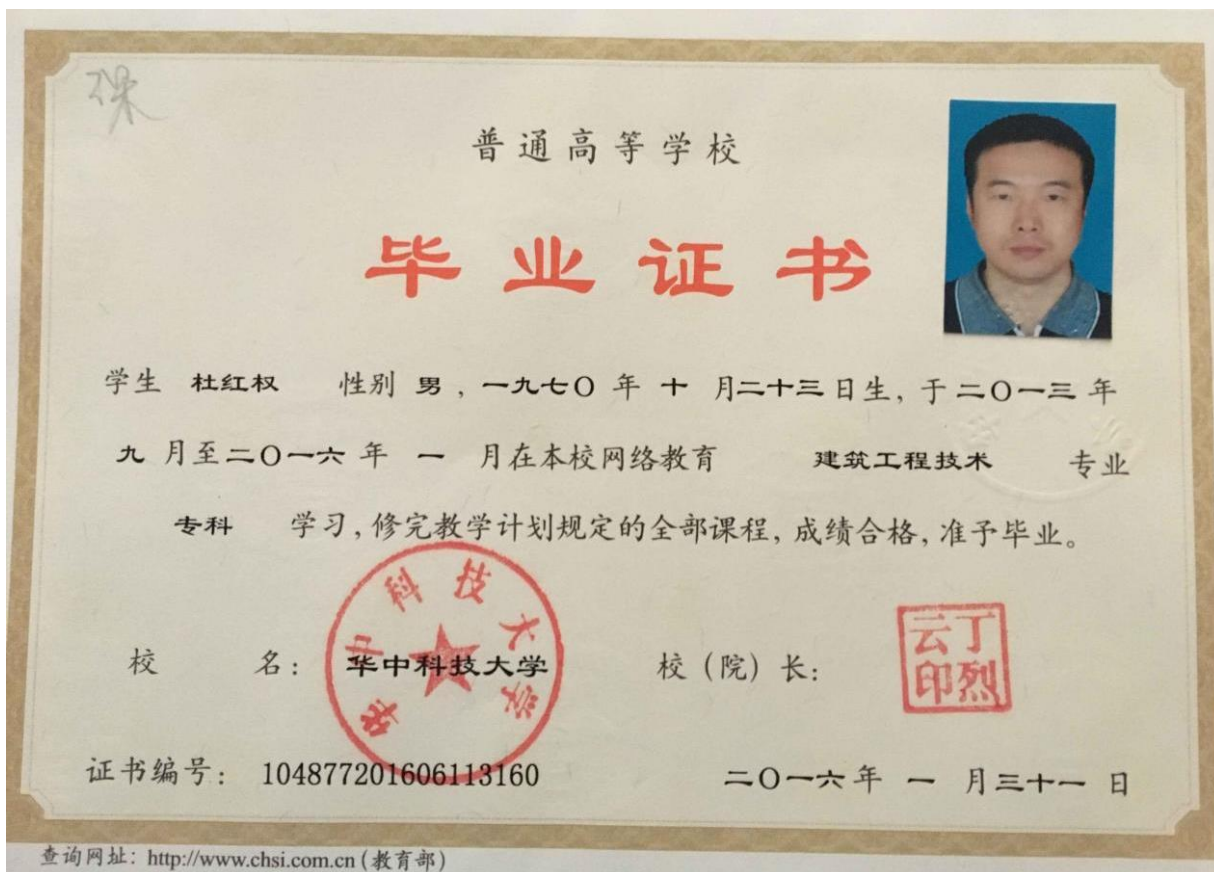 普通高等学校
毕业证书
学生 杜红权 性别 男，一九七〇 年 十 月二十三日生，于二〇一三 年
九 月至二〇一六 年 一 月在本校网络教育 建筑工程技术 专业
专科 学习，修完教学计划规定的全部课程，成绩合格，准予毕业。
华中科技大学
校 名： 华中科技大学 校（院）长： 丁烈云印
证书编号： 104877201606113160 二〇一六年 一 月三十一 日
查询网址：http://www.chsi.com.cn(教育部)